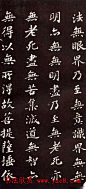 法無眼界乃至無意識界無無
明亦無無明盡乃至無老死亦
無老死盡無苦集滅道無智亦
無得以無所得故菩提薩埵依